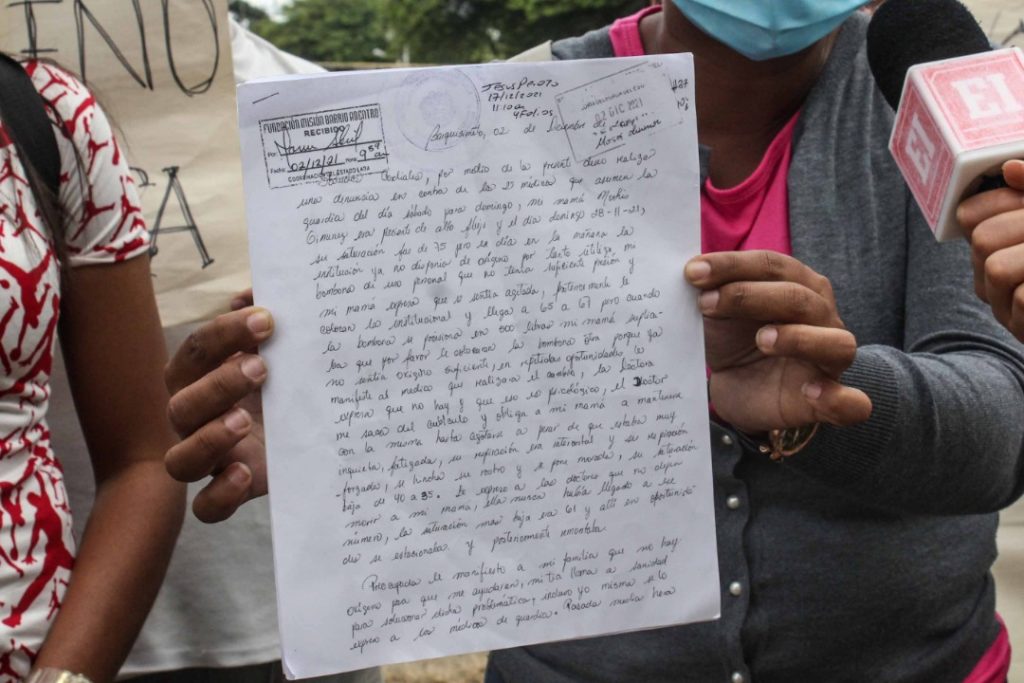 INO
A
JESUS PINTO
17/12/2021
11:10 a
4 Folios
FUNDACIÓN MISIÓN BARRIO ADENTRO
RECIBIDO
Por:
Fecha: 02/12/21 Hora: 9:57 am
COORDINACIÓN ESTADO LARA
02 DIC 2021
Barquisimeto, 02 de Diciembre del
Cordiales, por medio de la presente deseo realizar
una denuncia en contra de los médicos que asumen la
guardia del día sábado para domingo, mi mamá
Gimenez era paciente de alto flujo y el día domingo 28-11-21,
su saturación fue de 75 pero ese día en la mañana la
institución ya no disponía de oxígeno por tanto utiliza mi
bombona de uso personal que no tenía suficiente presión y
mi mamá expresa que se sentía agitada, posteriormente le
colocan la institucional y llega a 65 a 67 pero cuando
la bombona se posiciona en 500 libras mi mamá suplica-
ba que por favor le colocaran la bombona otra porque ya
no sentía oxígeno suficiente, en repetidas oportunidades le
manifiesto al medico que realizara el cambio, la doctora
expresa que no hay y que eso es psicológico, el Doctor
me saca del cubículo y obliga a mi mamá a mantenerse
con la misma hasta agotarse a pesar de que estaba muy
inquieta, fatigada, su respiración era intercostal y su respiración
forzada, se hincha su rostro y se pone morada, su saturación
bajo de 40 a 35. Le expreso a las doctoras que no dejen
morir a mi mamá, ella nunca había llegado a ese
número, la saturación mas baja era 61 y allí en oportunida
des se estacionaba y posteriormente aumentaba.
Preocupada le manifiesto a mi familia que no hay
oxígeno para que me ayudaran, mi tía llama a sanidad
para solucionar dicha problemática, incluso yo misma se lo
expreso a los médicos de guardia. Pasada media hora
EI
EI